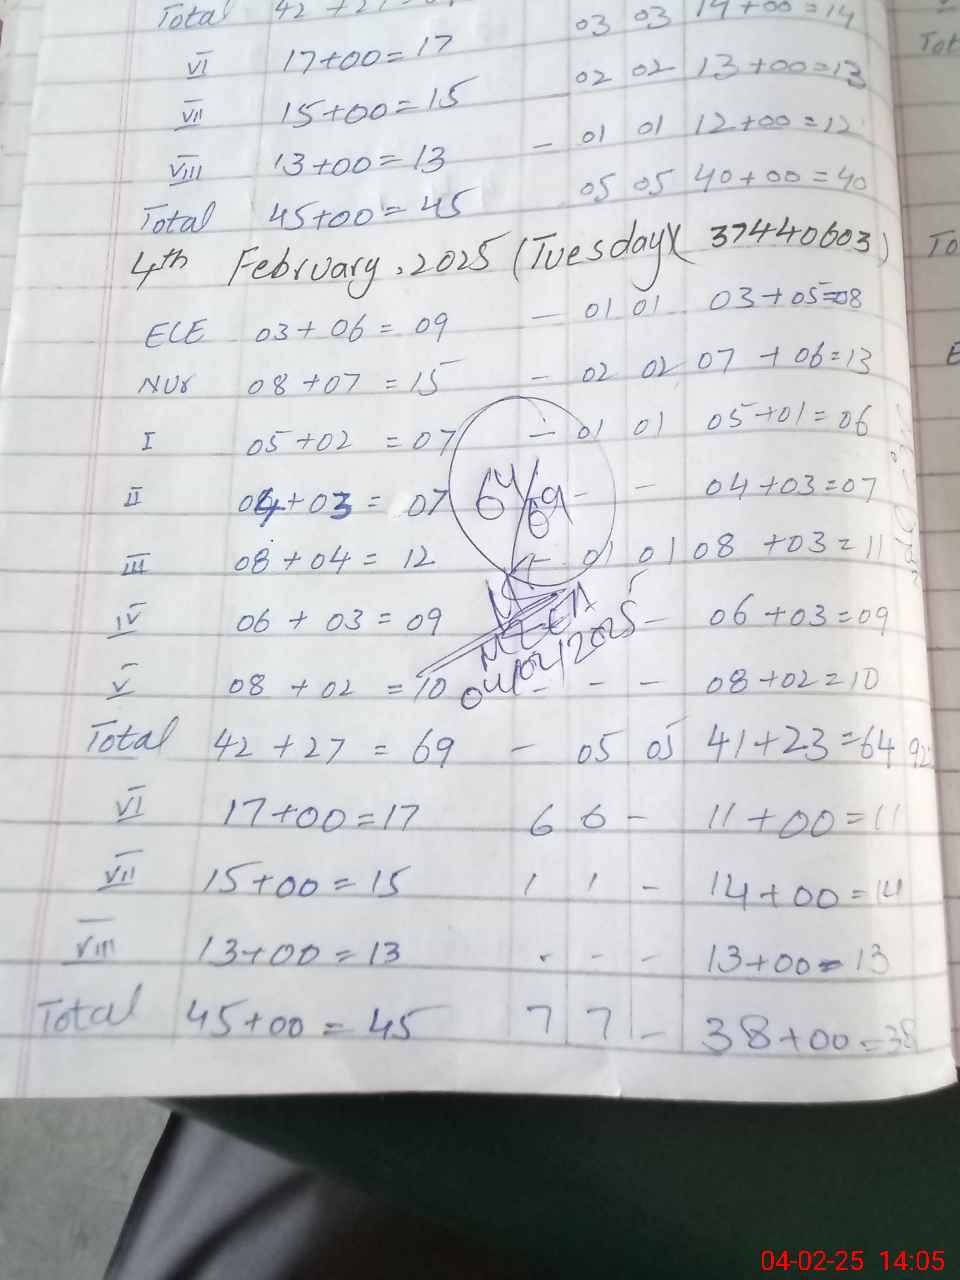 Total 42 + 27
03 03 14+00=14
VI 17+00=17
02 02 13+00=13
VII 15+00=15
- 01 01 12+00=12
VIII 13+00=13
05 05 40+00=40
Total 45+00=45
4th February, 2025 (Tuesday) (37440603)
ECE 03+06=09 - 01 01 03+05=08
Nur 08+07=15 - 02 02 07+06=13
I 05+02=07 - 01 01 05+01=06
II 04+03=07 - - 04+03=07
64/69
III 08+04=12 01 01 08+03=11
IV 06+03=09 - 06+03=09
MEA
04/02/2025
V 08+02=10 - - - 08+02=10
Total 42+27=69 - 05 05 41+23=64 92
VI 17+00=17 6 6 - 11+00=11
VII 15+00=15 1 1 - 14+00=14
VIII 13+00=13 - - - 13+00=13
Total 45+00=45 7 7 - 38+00=38
Tot
To
E
04-02-25 14:05